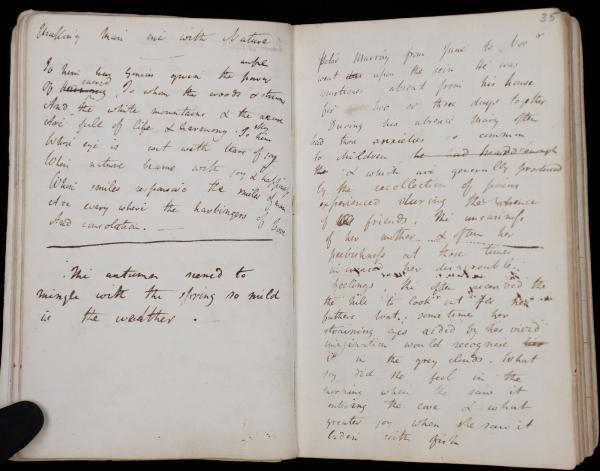 Making Man one with Nature
To him
given the power
To whom the woods & streams
And the white mountains & the azure sky
Are full of life & harmony. To him
Whose eye is wet with tears of joy
When nature beams with joy & happiness
Whose smiles responsive the smiles of
Are every where the harbingers of love
And consolation. —
The autumn seemed to
mingle with the spring so mild
is the weather .
35
Peter Murray from June to Nov r
went upon the sea He was
sometimes absent from his house
for two or three days together
During his absence Mary often
had those anxieties so common
to children, he had heard enough
the & which are generally produced
by the recollection of poems
experienced during the absence
of friends. The uneasiness
of her mother & often her
peevishness at those times
increased her disagreeable
feelings. She often ascended the
the hill to look out for her
fathers boat. some times her
straining eyes aided by her vivid
imagination would recognise her
it in the grey clouds. What
joy did she feel in the
morning when she saw it
entering the cove & what
greater joy when she saw it
laden with fish